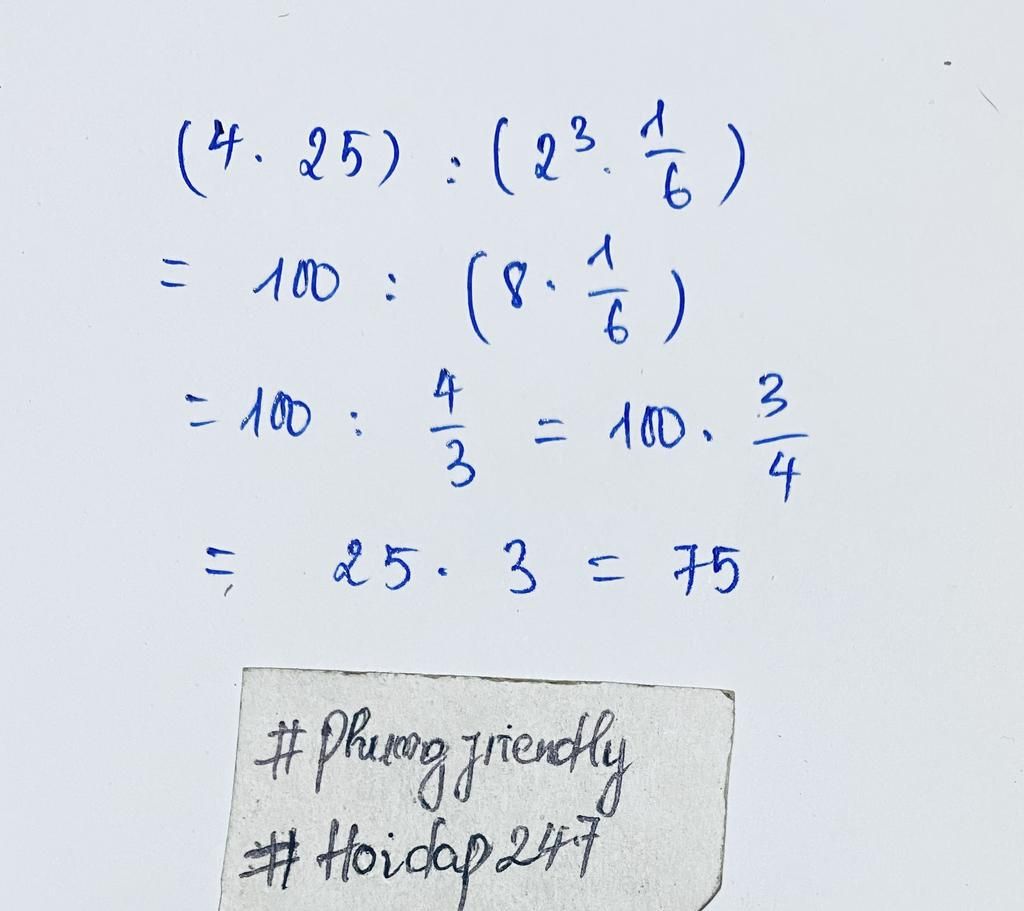 (4. 25) : (2³. 1/6)
= 100 : (8. 1/6)
= 100 : 4/3 = 100. 3/4
= 25. 3 = 75
# Phương friendly
# Hoidap247